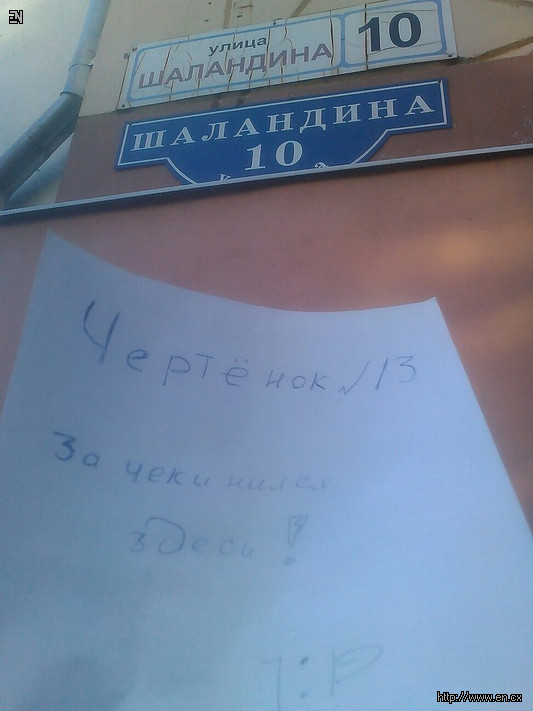 EN
улица
ШАЛАНДИНА
10
ШАЛАНДИНА
10
Чертёнок №13
За чекинился
здесь!
:P
http://www.en.cx